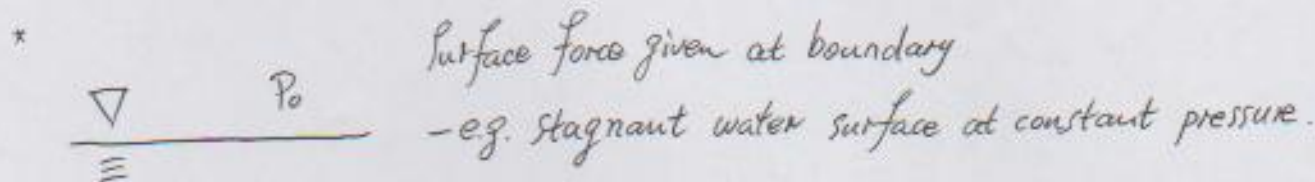 * Surface force given at boundary
P₀
- eg. stagnant water surface at constant pressure.